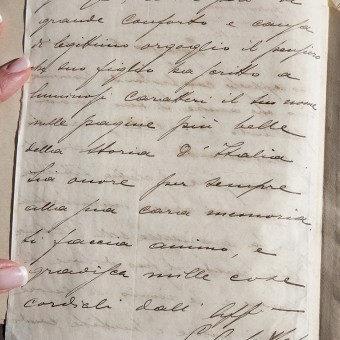 grande conforto e causa
di legittimo orgoglio il pensiero
tuo figlio ha scritto a
luminosi caratteri il tuo nome
nelle pagine più belle
della Storia d'Italia.
Sia onore per sempre
alla sua cara memoria.
Si faccia animo, e
gradisca mille cose
cordiali dall' Aff